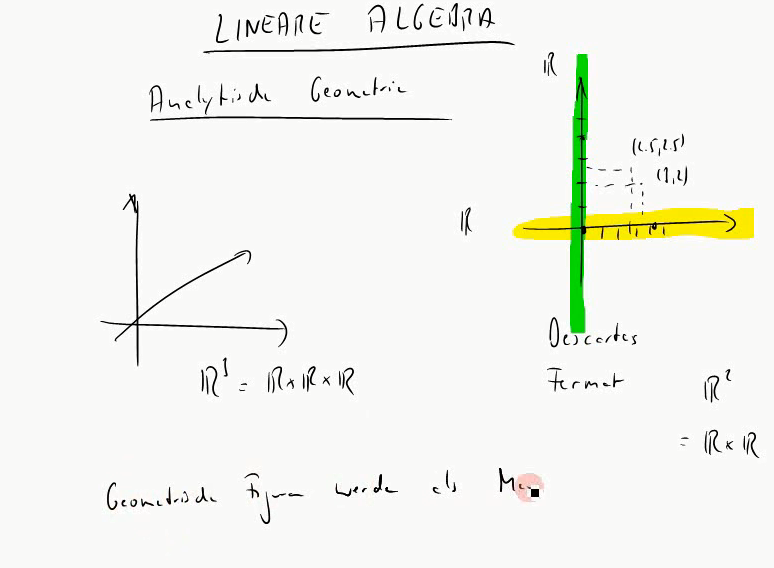 LINEARE ALGEBRA
Analytische Geometrie
ℝ
(2.5,2.5)
(3,2)
ℝ
Descartes
ℝ³ = ℝ×ℝ×ℝ
Fermat
ℝ²
= ℝ×ℝ
Geometrische Figuren werden als